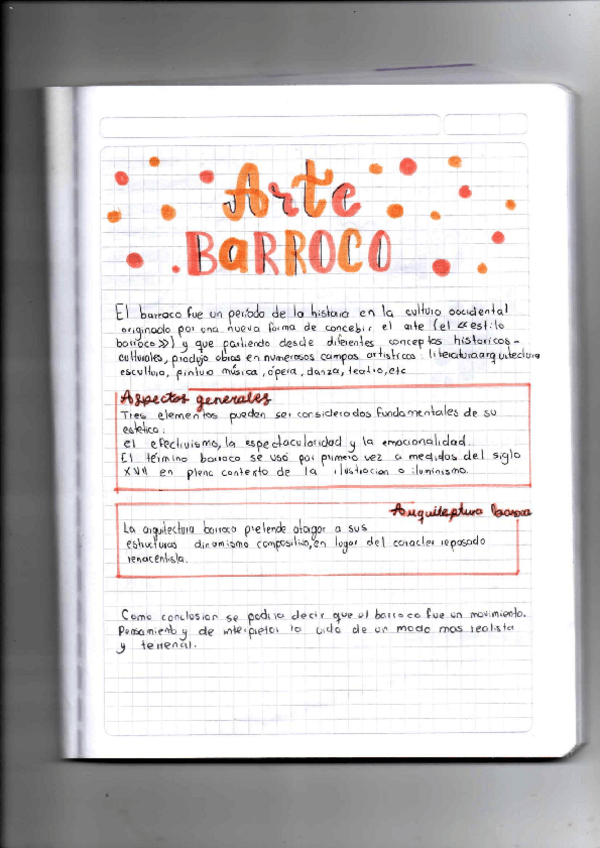 Arte
BARROCO
El barroco fue un período de la historia en la cultura occidental
originado por una nueva forma de concebir el arte (el «estilo
barroco») y que partiendo desde diferentes conceptos históricos-
culturales, produjo obras en numerosos campos artísticos: literatura arquitectura
escultura, pintura música, ópera, danza, teatro, etc
Aspectos generales
Tres elementos pueden ser considerados fundamentales de su
estética:
el efectivismo, la espectacularidad y la emocionalidad.
El término barroco se usó por primera vez a mediados del siglo
XVII en plena contexto de la ilustracion o iluminismo.
Arquiteptura barroca
La arquitectura barroca pretende otorgar a sus
estructuras dinamismo compositivo, en lugar del caracter reposado
renacentista.
Como conclusion se podria decir que el barroco fue un movimiento.
Pensamiento y de interpretar la vida de un modo mas realista
y terrenal.